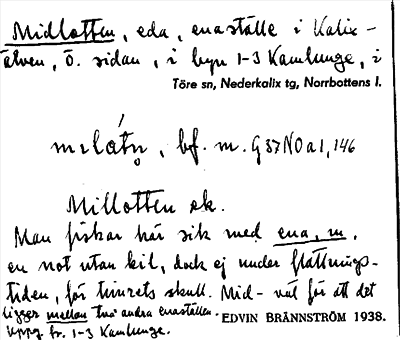 Midlotten, eda, enaställe i Kalix-
älven, ö. sidan, i byn 1-3 Kamlunge, i
Töre sn, Nederkalix tg, Norrbottens l.
bf. m. G37NOa1,146
Millotten ek.
Man fiskar här sik med ena, m.
en not utan kil, dock ej under flottnings-
tiden, för timrets skull. Mid- väl för att det
ligger mellan två andra enaställen.
Uppg. fr. 1-3 Kamlunge.
EDVIN BRÄNNSTRÖM 1938.